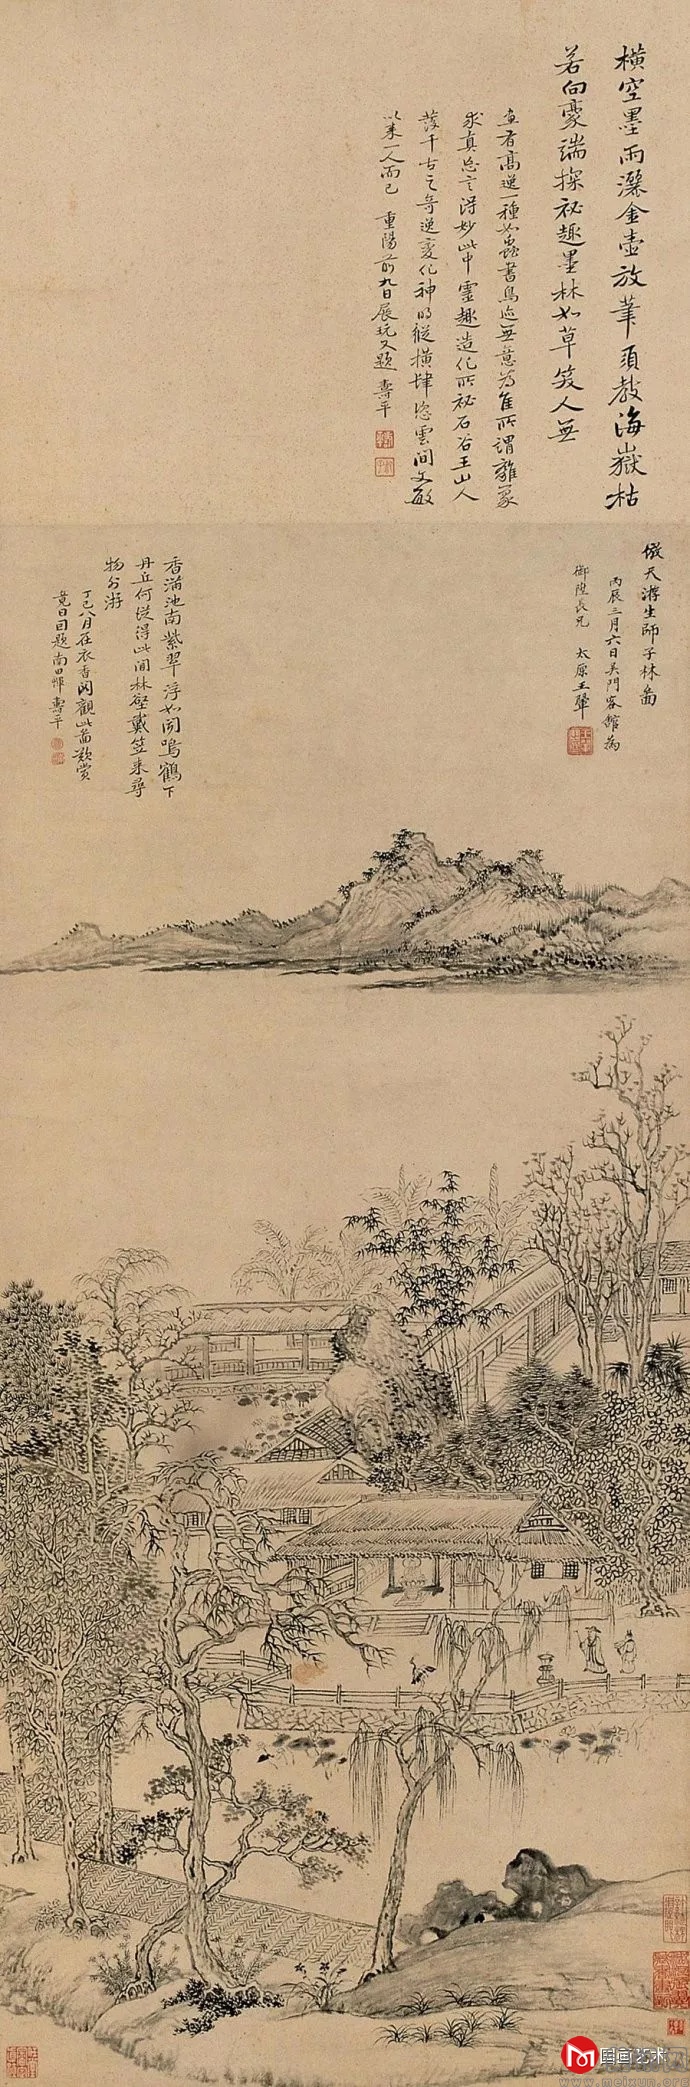 橫空墨雨灑金壺放筆須教海嶽枯
若向豪端探祕趣墨林如草笑人無
畫有高逸一種如蟲書鳥迹無意為佳所謂離象
求真忘言得妙此中靈趣造化所祕石谷王山人
發千古之奇逸變化神明縱橫肆恣雲間文敏
以来一人而已 重陽前九日展玩又題 壽平
倣天游生師子林啚
丙辰三月六日吴門客館為
御陞長兄 太原王翬
香滿池南紫翠浮如聞鳴鶴下
丹丘何從得此間林壑戴笠来尋
物外游
丁巳八月在衣香閣觀此啚歎賞
竟日因題南田惲壽平
国画艺术
www.meixun.org